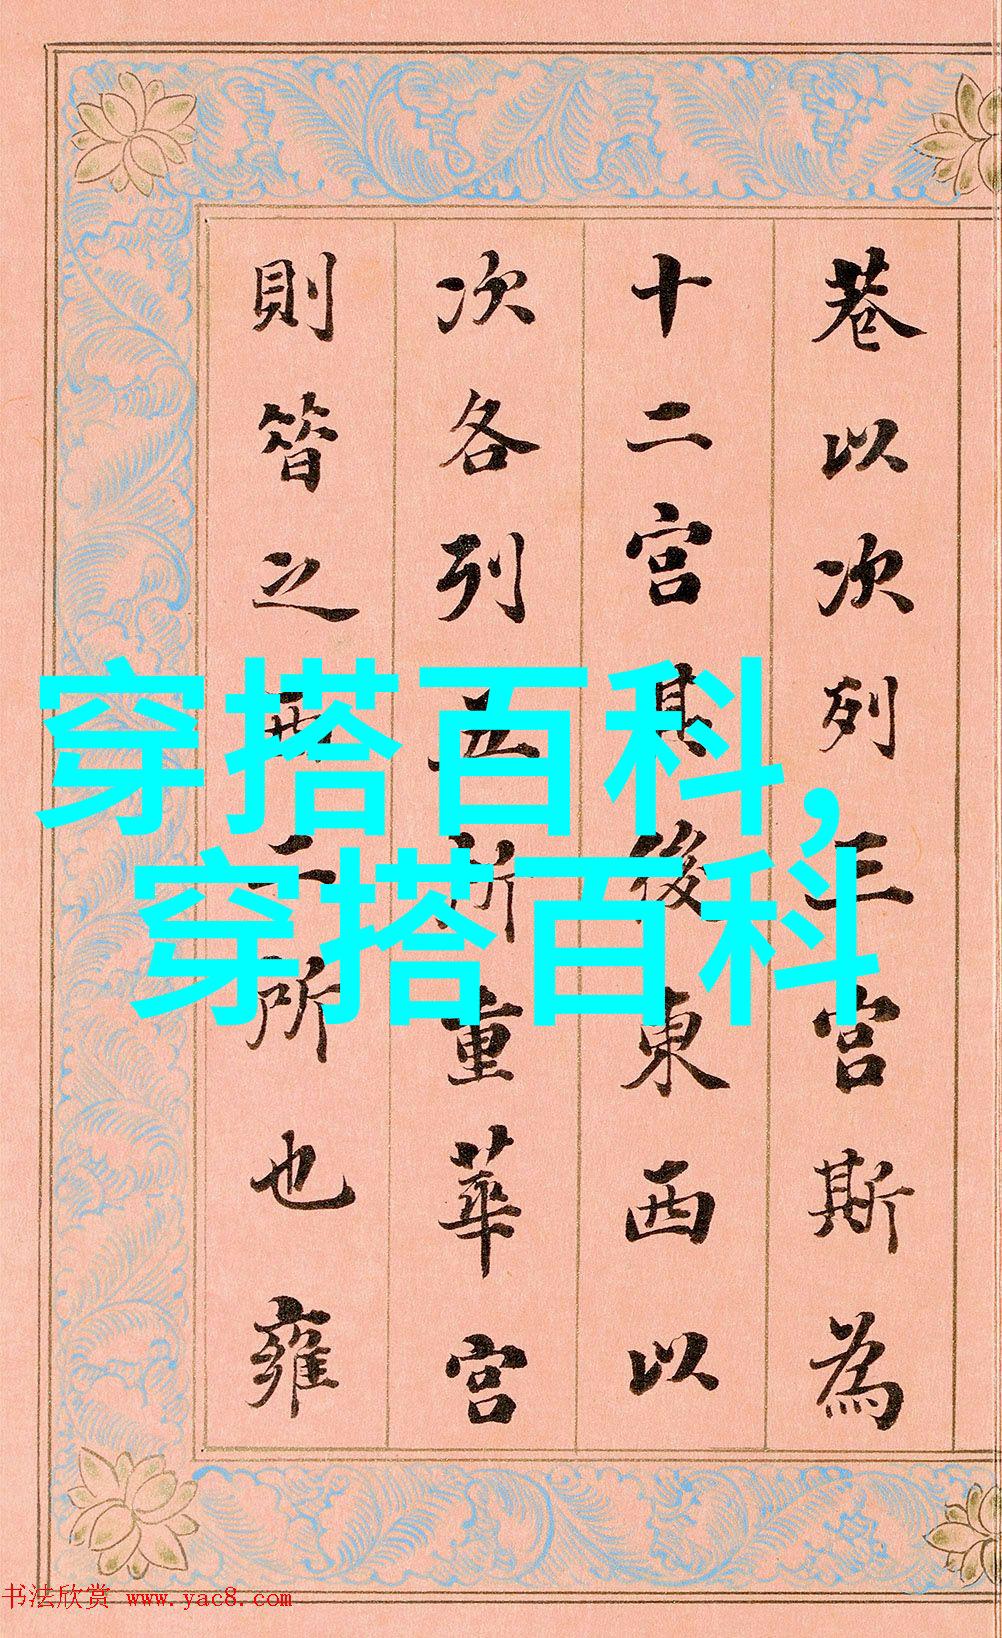 巷以次列三宫斯為
十二宫其後東西以
次各列五所重華宫
則昔之西二所也雍
穿搭百科,
穿搭百科
书法欣赏 www.yac8.com